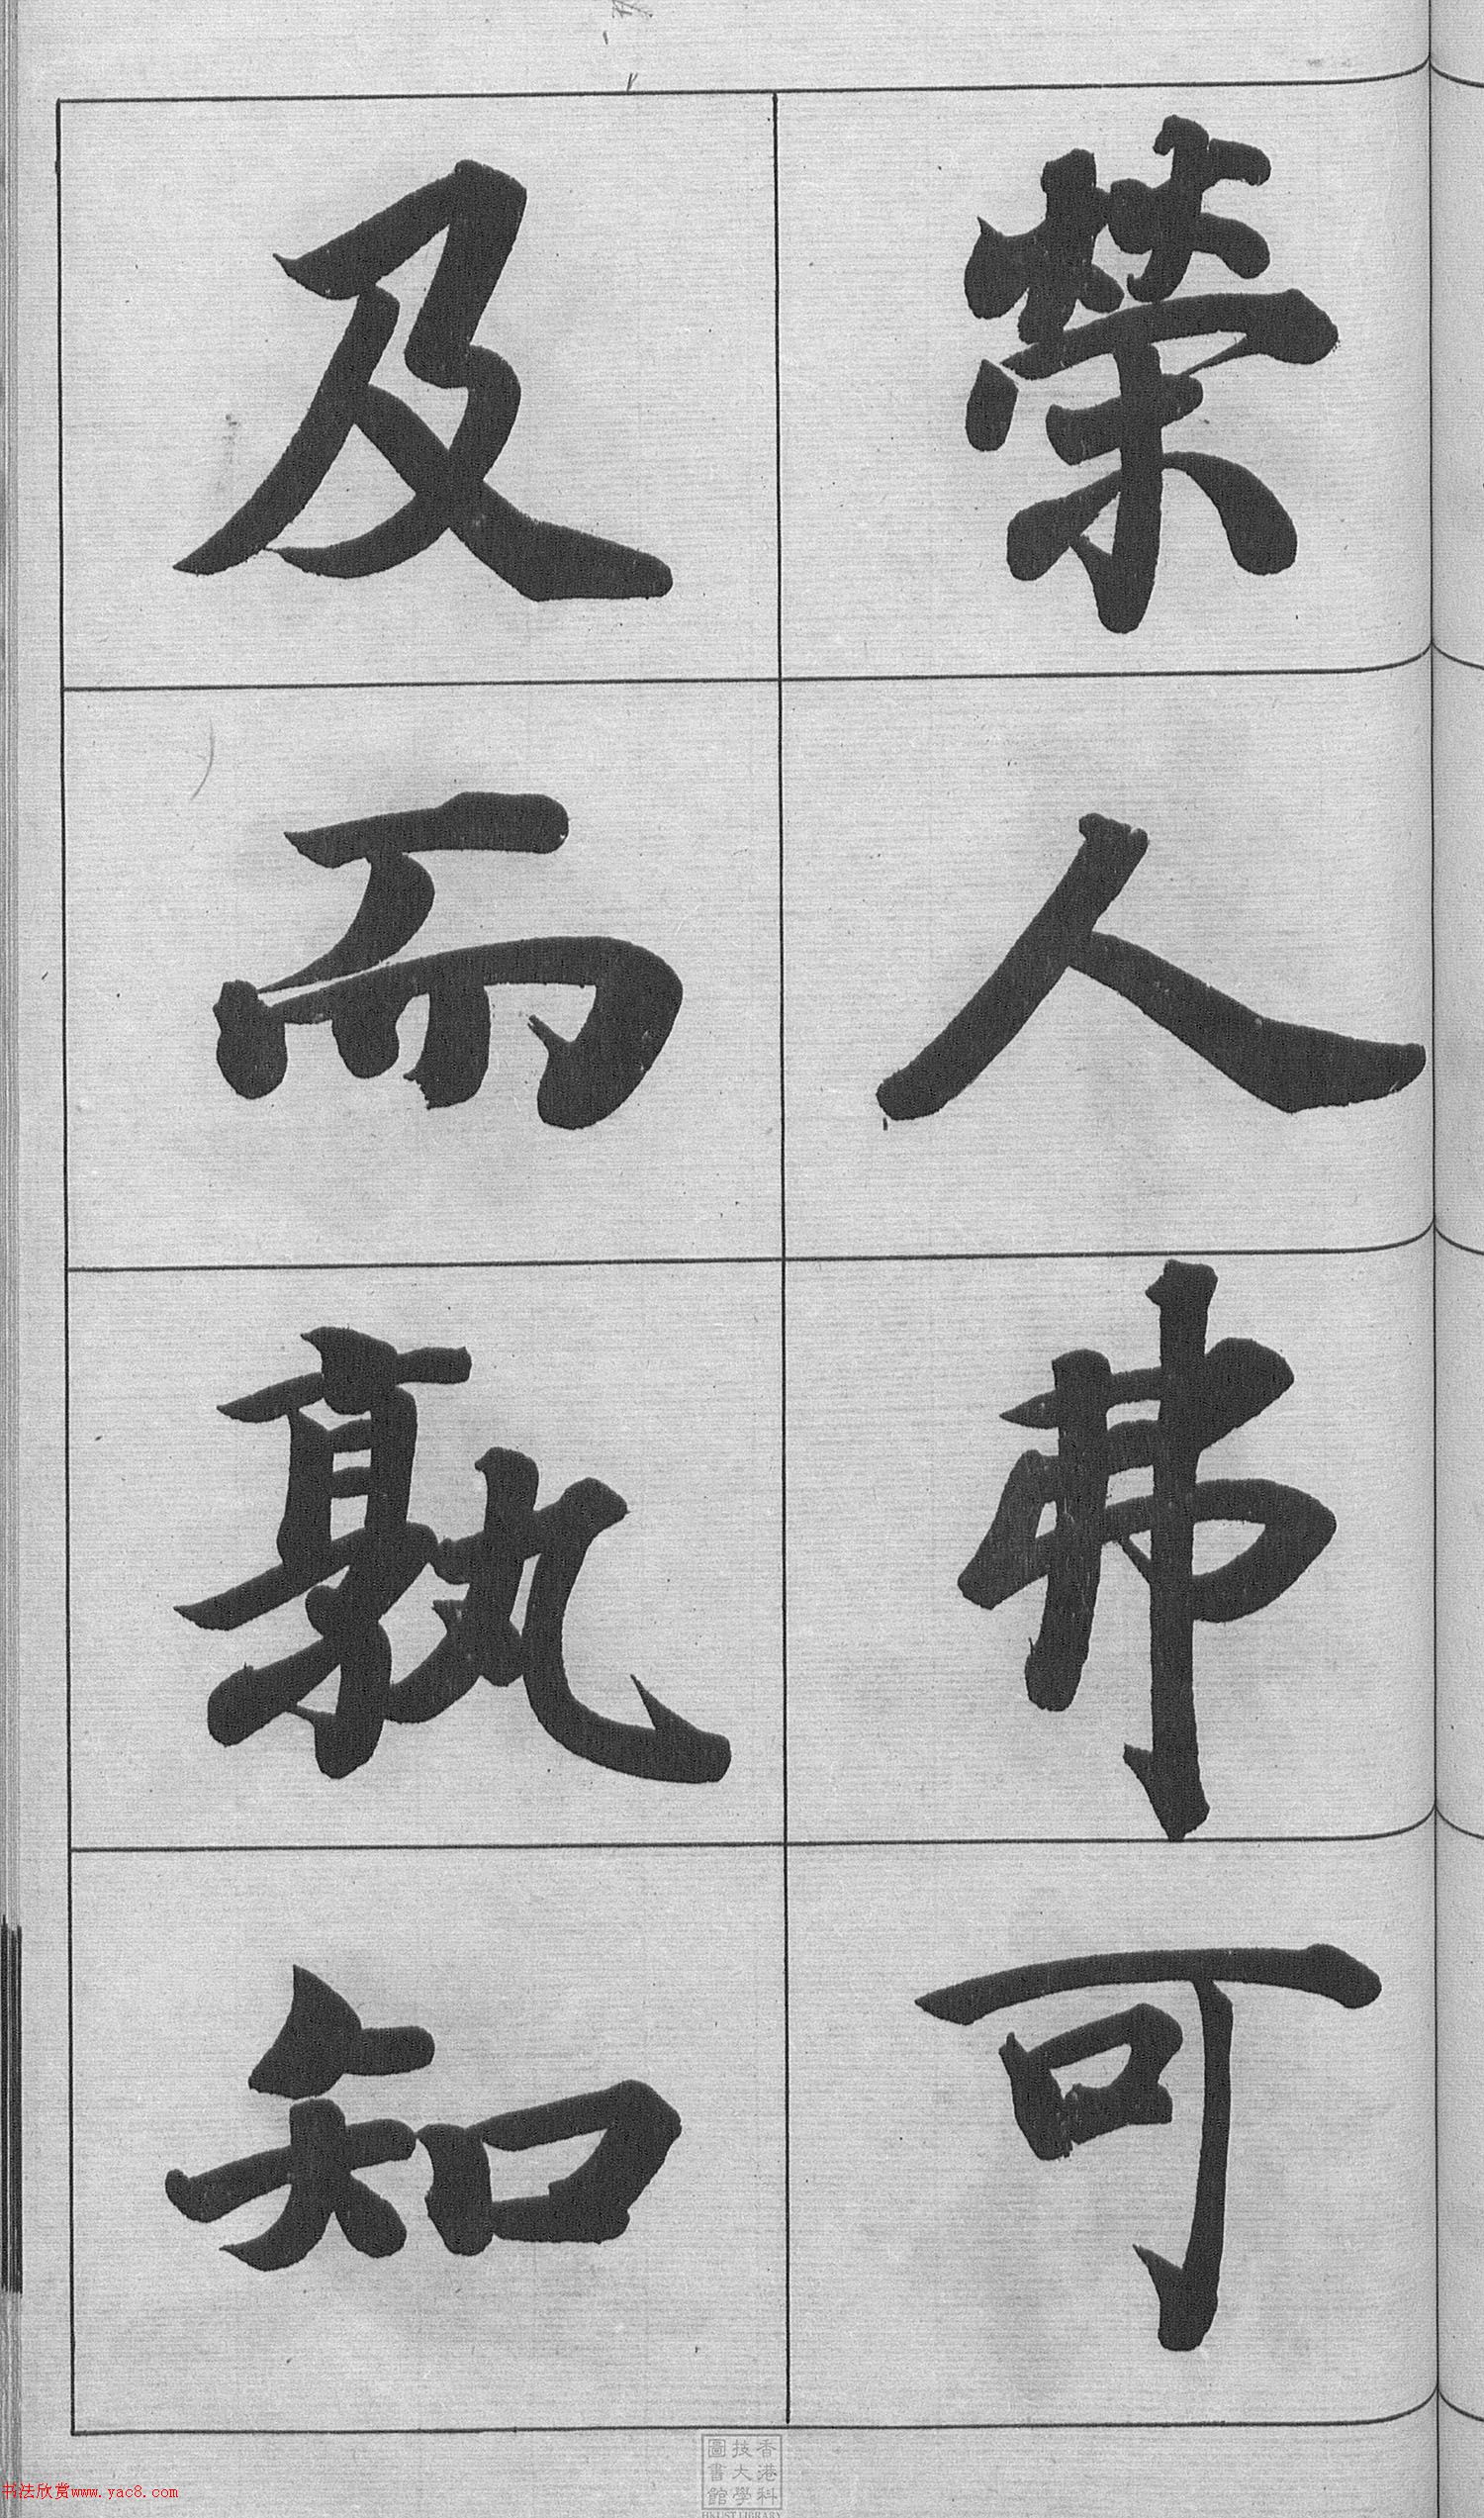 榮人弗可
及而孰知
香港科
技大學
圖書館
HKUST LIBRARY
书法欣赏www.yac8.com